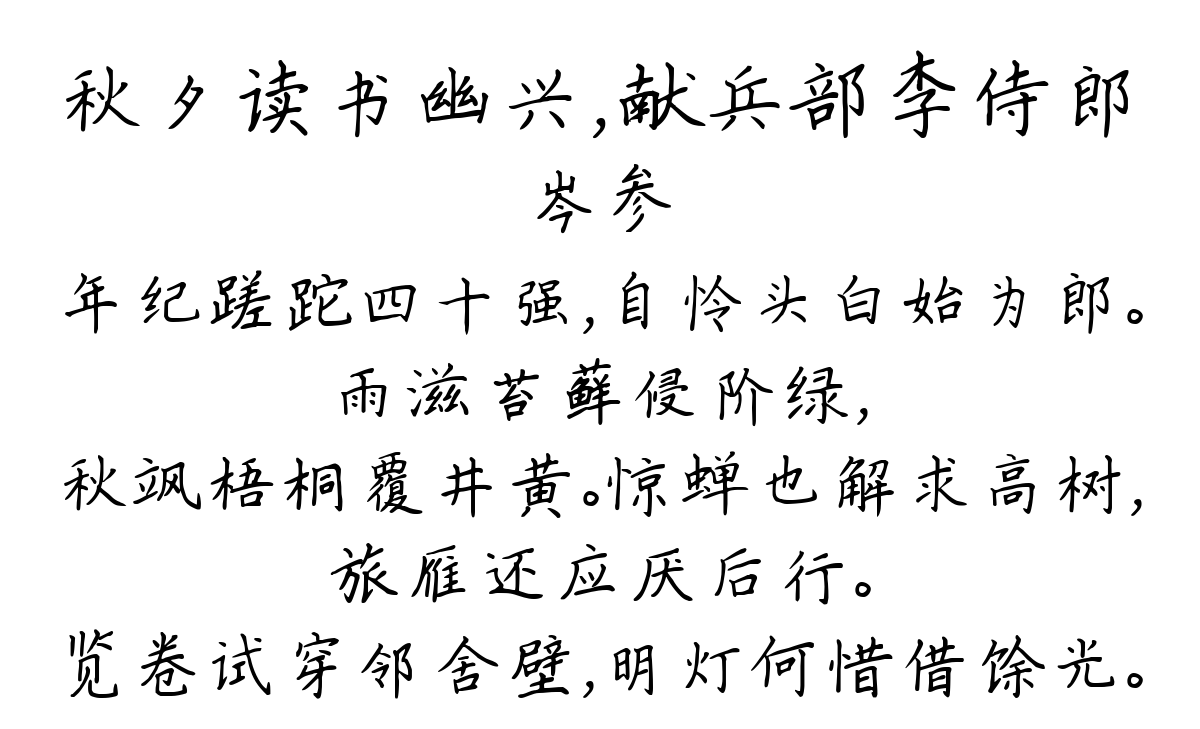 秋夕读书幽兴,献兵部李侍郎
岑参
年纪蹉跎四十强,自怜头白始为郎。
雨滋苔藓侵阶绿,
秋飒梧桐覆井黄。惊蝉也解求高树,
旅雁还应厌后行。
览卷试穿邻舍壁,明灯何惜借馀光。